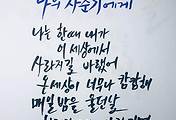 나의 사춘기에게
나는 한때 내가
이 세상에서
사라지길 바랬어
온 세상이 너무나 캄캄해
매일 밤을 울던 날